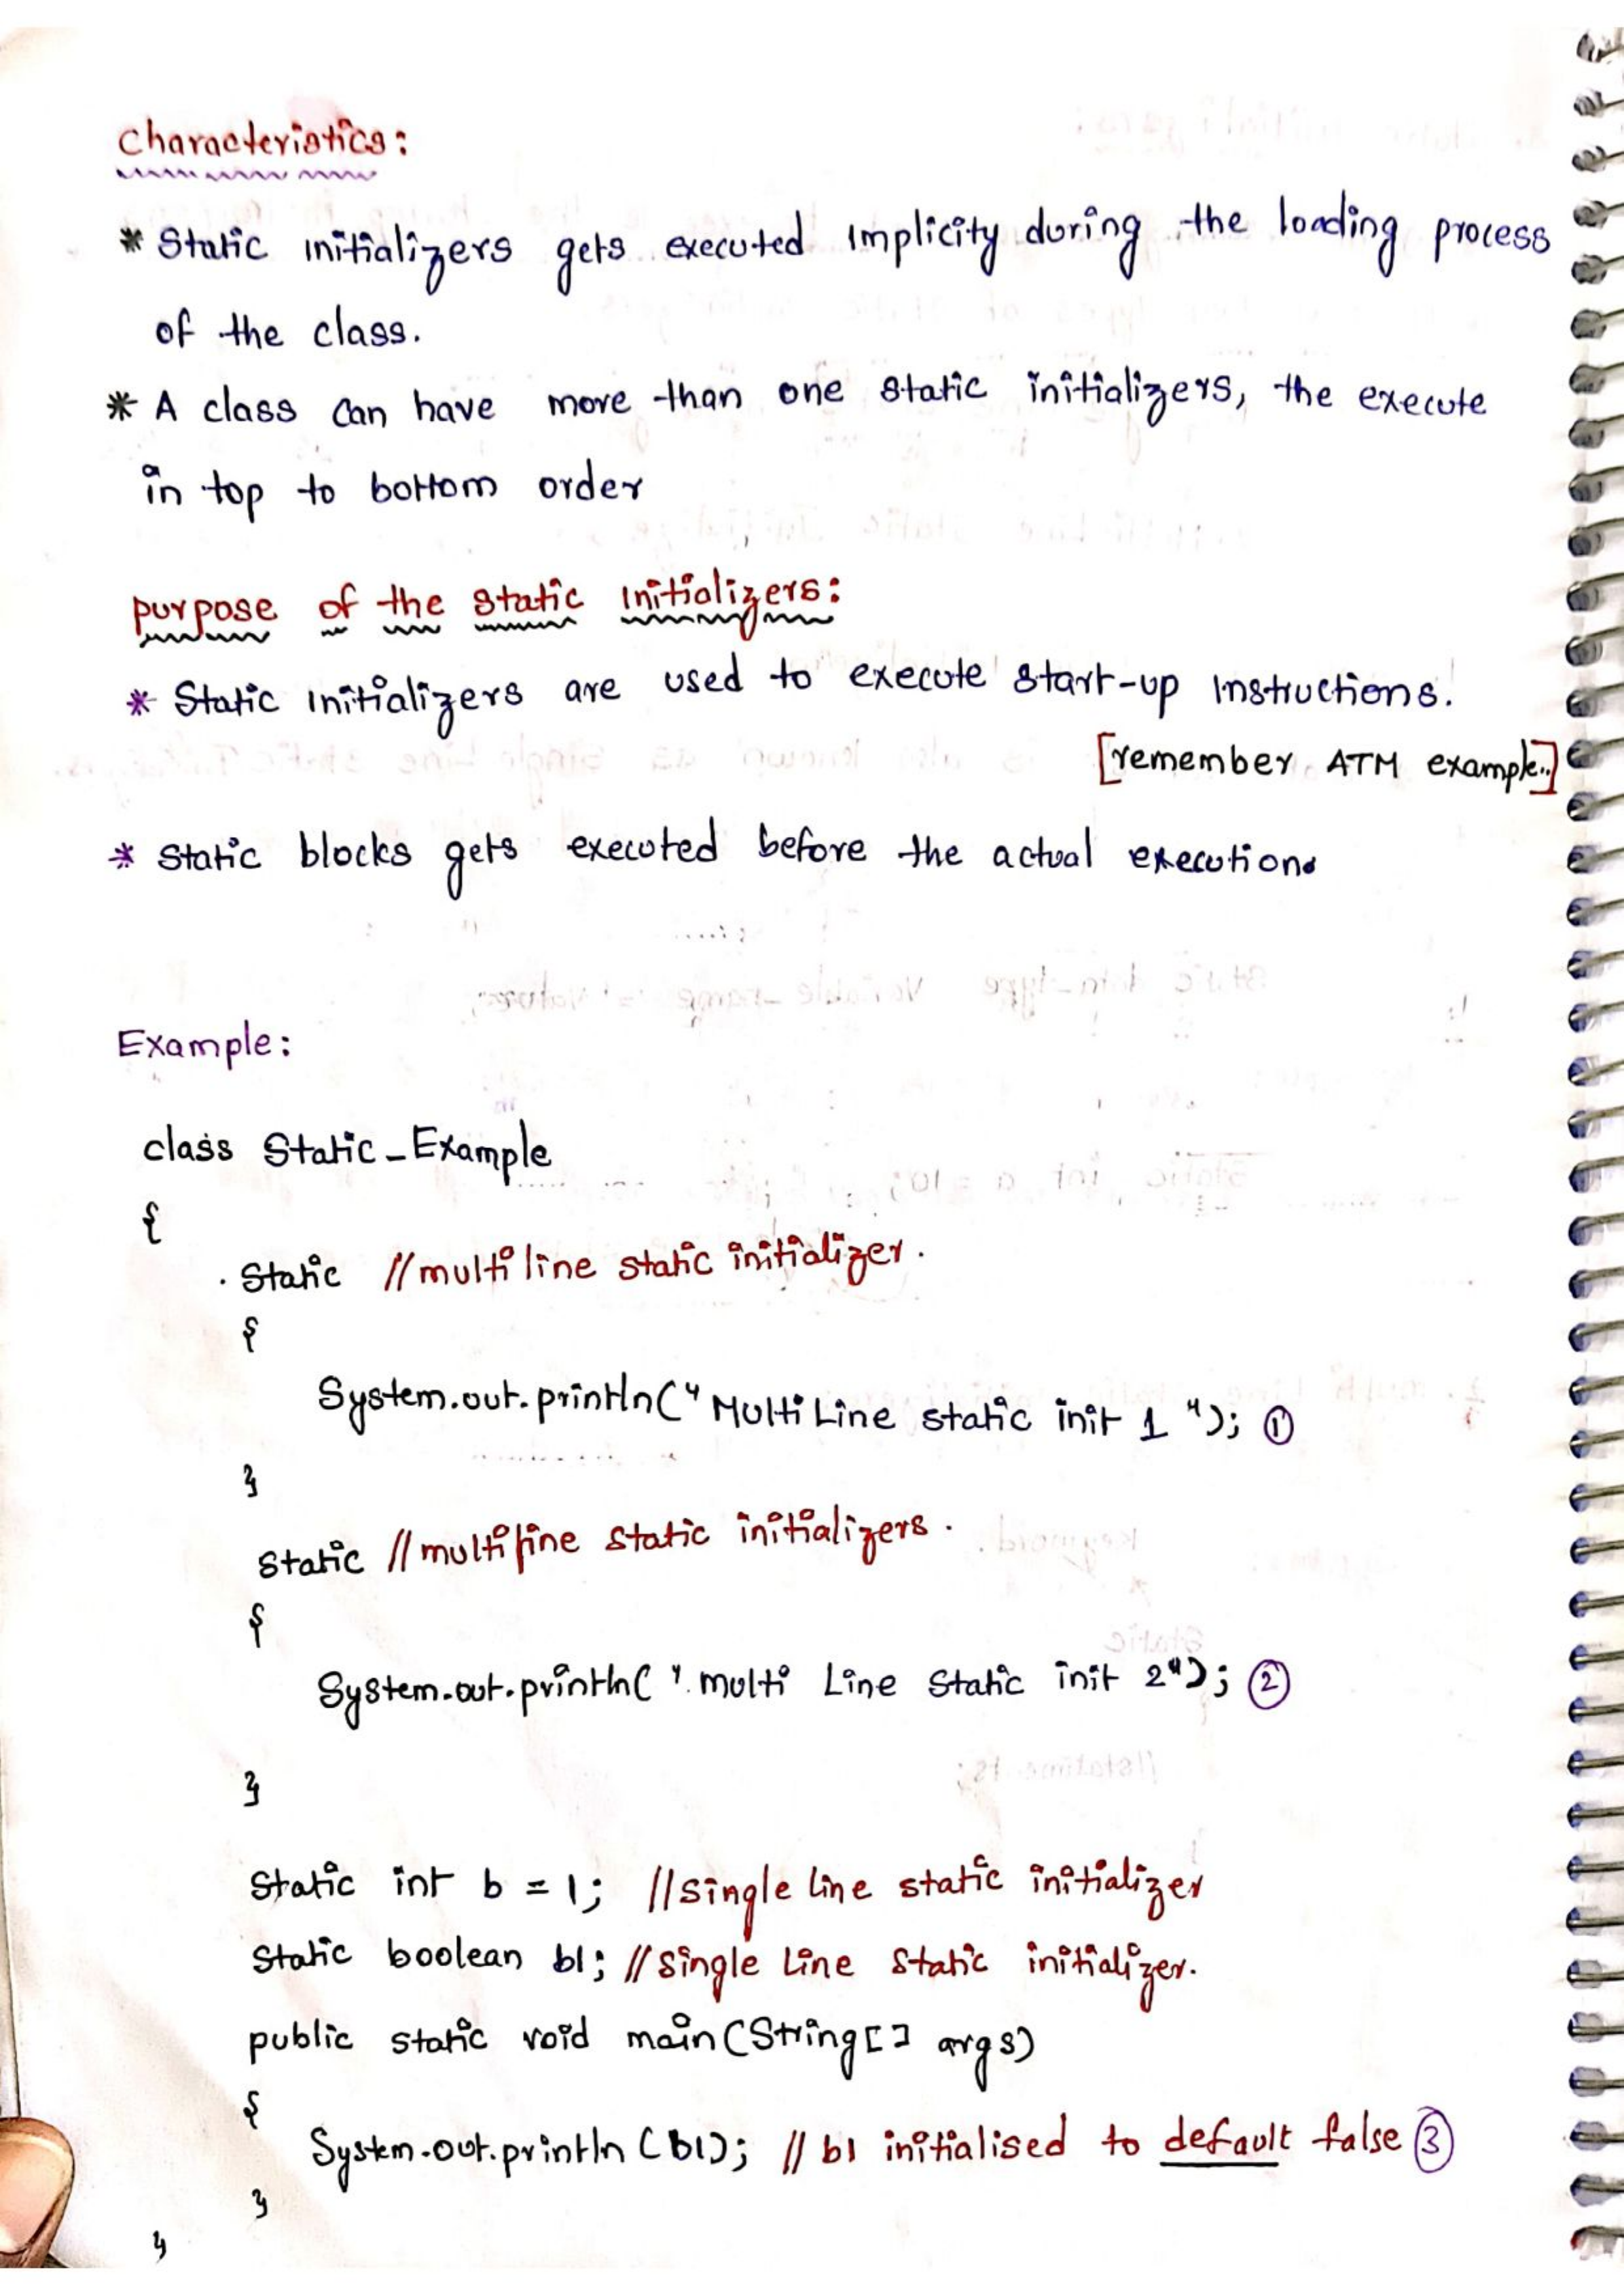 Characteristics:
* Static initializers gets executed Implicity during the loading process
of the class.
* A class can have more than one static initializers, the execute
in top to bottom order
purpose of the static Initializers:
* Static Initializers are used to execute start-up Instructions.
[remember ATM example..]
* Static blocks gets executed before the actual execution.
Example:
class Static_Example
{
Static //multiline static initializer.
{
System.out.println("Multi Line static init 1 "); ①
}
Static //multiline static initializers.
{
System.out.println("multi Line Static init 2"); ②
}
Static int b = 1; //single line static initializer
Static boolean b1; //single Line Static initializer.
public static void main(String[] args)
{
System.out.println (b1); // b1 initialised to default false ③
}
}